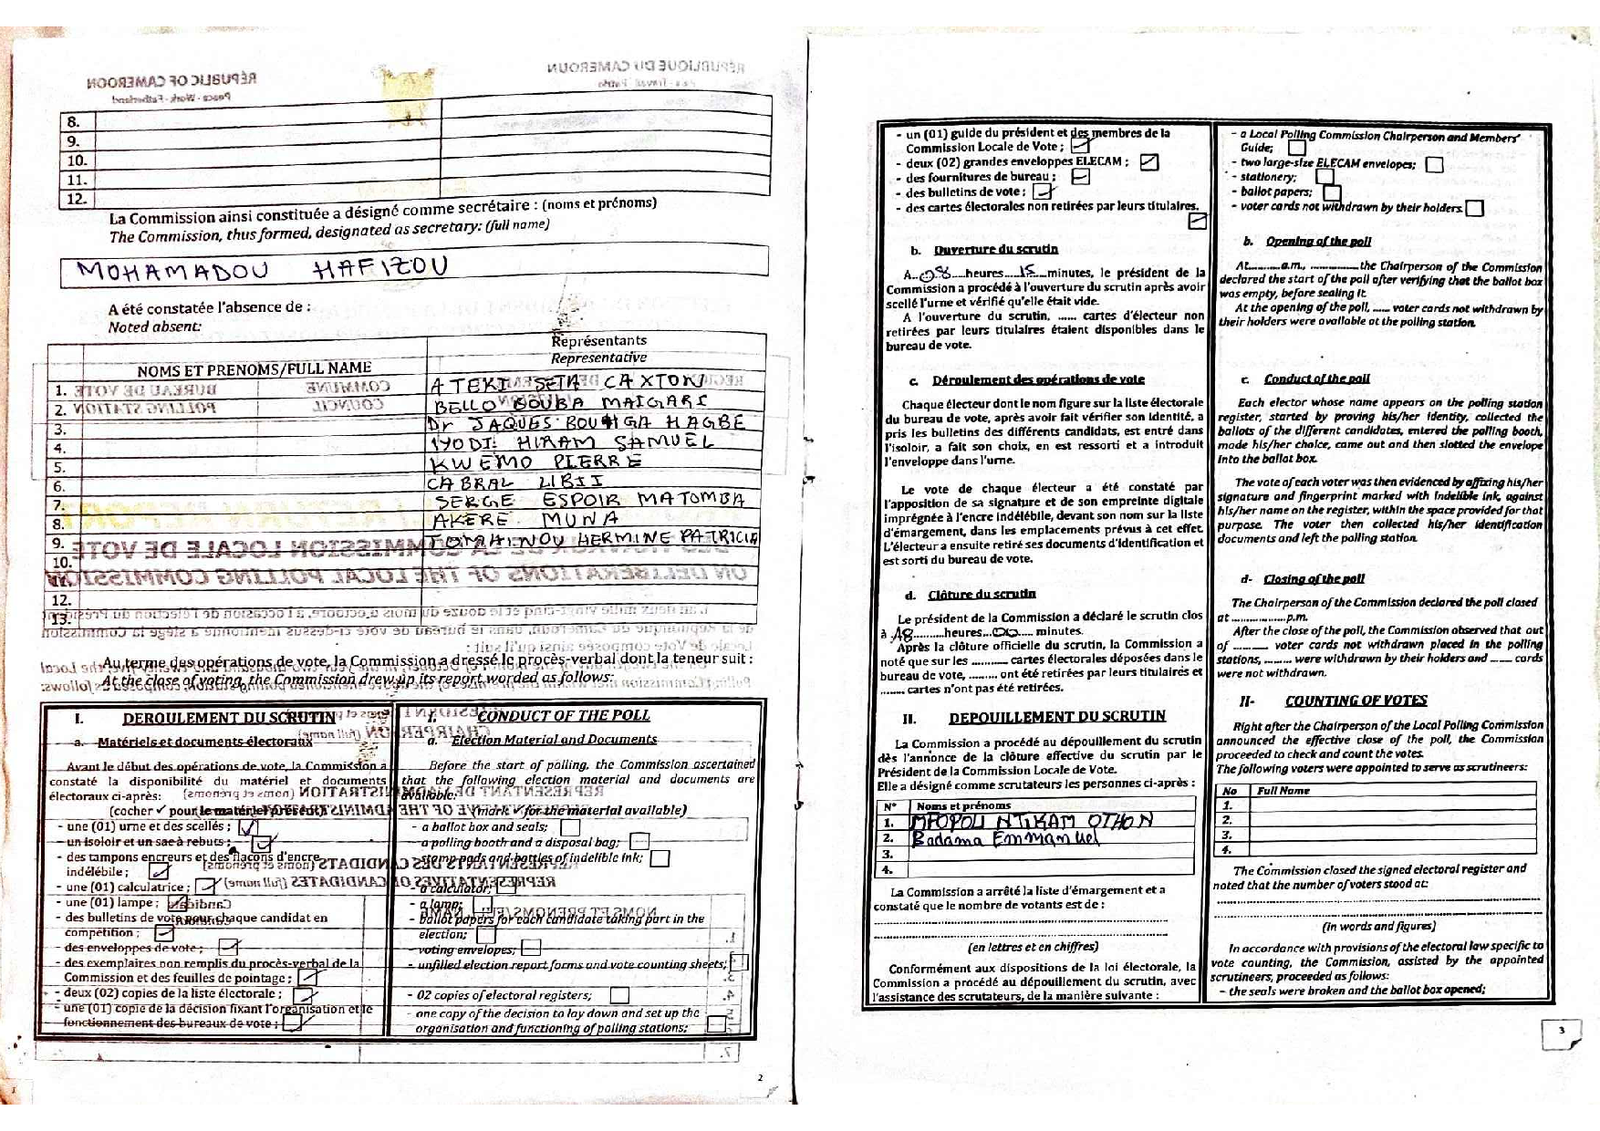 8.
9.
10.
11.
12.
La Commission ainsi constituée a désigné comme secrétaire : (noms et prénoms)
The Commission, thus formed, designated as secretary: (full name)
MOHAMADOU HAFIZOU
A été constatée l'absence de :
Noted absent:
NOMS ET PRENOMS/FULL NAME
Représentants
Representative
1. ATEKI SETA CAXTON
2. BELLO BOUBA MAIGARI
3. Dr JAQUES BOUHGA HAGBE
4. IYODI HIRAM SAMUEL
5. KWEMO PIERRE
6. CABRAL LIBII
7. SERGE ESPOIR MATOMBA
8. AKERE MUNA
9. TOMAINOU HERMINE PATRICIA
10.
11.
12.
13.
Au terme des opérations de vote, la Commission a dressé le procès-verbal dont la teneur suit :
At the close of voting, the Commission drew up its report worded as follows:
I. DEROULEMENT DU SCRUTIN
a. Matériels et documents électoraux
Avant le début des opérations de vote, la Commission a
constaté la disponibilité du matériel et documents
électoraux ci-après:
(cocher ✓ pour le matériel présent)
- une (01) urne et des scellés ;
- un isoloir et un sac à rebuts ;
- des tampons encreurs et des flacons d'encre
indélébile ;
- une (01) calculatrice ;
- une (01) lampe ;
- des bulletins de vote pour chaque candidat en
compétition ;
- des enveloppes de vote ;
- des exemplaires non remplis du procès-verbal de la
Commission et des feuilles de pointage ;
- deux (02) copies de la liste électorale ;
- une (01) copie de la décision fixant l'organisation et le
fonctionnement des bureaux de vote ;
I. CONDUCT OF THE POLL
a. Election Material and Documents
Before the start of polling, the Commission ascertained
that the following election material and documents are
available:
(mark ✓ for the material available)
- a ballot box and seals;
- a polling booth and a disposal bag;
- stamp pads and bottles of indelible ink;
- a calculator;
- a lamp;
- ballot papers for each candidate taking part in the
election;
- voting envelopes;
- unfilled election report forms and vote counting sheets;
- 02 copies of electoral registers;
- one copy of the decision to lay down and set up the
organisation and functioning of polling stations;
2
- un (01) guide du président et des membres de la
Commission Locale de Vote ;
- deux (02) grandes enveloppes ELECAM ;
- des fournitures de bureau ;
- des bulletins de vote ;
- des cartes électorales non retirées par leurs titulaires.
b. Ouverture du scrutin
A..08....heures...15....minutes, le président de la
Commission a procédé à l'ouverture du scrutin après avoir
scellé l'urne et vérifié qu'elle était vide.
A l'ouverture du scrutin, ...... cartes d'électeur non
retirées par leurs titulaires étaient disponibles dans le
bureau de vote.
c. Déroulement des opérations de vote
Chaque électeur dont le nom figure sur la liste électorale
du bureau de vote, après avoir fait vérifier son identité, a
pris les bulletins des différents candidats, est entré dans
l'isoloir, a fait son choix, en est ressorti et a introduit
l'enveloppe dans l'urne.
Le vote de chaque électeur a été constaté par
l'apposition de sa signature et de son empreinte digitale
imprégnée à l'encre indélébile, devant son nom sur la liste
d'émargement, dans les emplacements prévus à cet effet.
L'électeur a ensuite retiré ses documents d'identification et
est sorti du bureau de vote.
d. Clôture du scrutin
Le président de la Commission a déclaré le scrutin clos
à 18.........heures...00.... minutes.
Après la clôture officielle du scrutin, la Commission a
noté que sur les ........... cartes électorales déposées dans le
bureau de vote, ......... ont été retirées par leurs titulaires et
........ cartes n'ont pas été retirées.
II. DEPOUILLEMENT DU SCRUTIN
La Commission a procédé au dépouillement du scrutin
dès l'annonce de la clôture effective du scrutin par le
Président de la Commission Locale de Vote.
Elle a désigné comme scrutateurs les personnes ci-après :
N° Noms et prénoms
1. MFOPOU NTIKAM OTHON
2. Badama Emmanuel
3.
4.
La Commission a arrêté la liste d'émargement et a
constaté que le nombre de votants est de :
(en lettres et en chiffres)
Conformément aux dispositions de la loi électorale, la
Commission a procédé au dépouillement du scrutin, avec
l'assistance des scrutateurs, de la manière suivante :
- a Local Polling Commission Chairperson and Members'
Guide;
- two large-size ELECAM envelopes;
- stationery;
- ballot papers;
- voter cards not withdrawn by their holders.
b. Opening of the poll
At...........a.m., ................the Chairperson of the Commission
declared the start of the poll after verifying that the ballot box
was empty, before sealing it.
At the opening of the poll, ...... voter cards not withdrawn by
their holders were available at the polling station.
c. Conduct of the poll
Each elector whose name appears on the polling station
register, started by proving his/her identity, collected the
ballots of the different candidates, entered the polling booth,
made his/her choice, came out and then slotted the envelope
into the ballot box.
The vote of each voter was then evidenced by affixing his/her
signature and fingerprint marked with indelible ink, against
his/her name on the register, within the space provided for that
purpose. The voter then collected his/her identification
documents and left the polling station.
d- Closing of the poll
The Chairperson of the Commission declared the poll closed
at ..................p.m.
After the close of the poll, the Commission observed that out
of ......... voter cards not withdrawn placed in the polling
stations, ........ were withdrawn by their holders and ....... cards
were not withdrawn.
II- COUNTING OF VOTES
Right after the Chairperson of the Local Polling Commission
announced the effective close of the poll, the Commission
proceeded to check and count the votes.
The following voters were appointed to serve as scrutineers:
No Full Name
1.
2.
3.
4.
The Commission closed the signed electoral register and
noted that the number of voters stood at:
(in words and figures)
In accordance with provisions of the electoral law specific to
vote counting, the Commission, assisted by the appointed
scrutineers, proceeded as follows:
- the seals were broken and the ballot box opened;
3